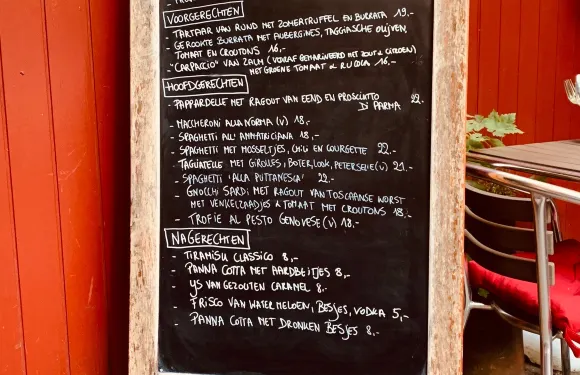 VOORGERECHTEN
- TARTAAR VAN RUND MET ZOMERTRUFFEL EN BURRATA 19,-
- GEROOKTE BURRATA MET AUBERGINES, TAGGIASCHE OLIJVEN,
TOMAAT EN CROUTONS 16,-
- "CARPACCIO" VAN ZALM (VOORAF GEMARINEERD MET ZOUT & CITROEN)
MET GROENE TOMAAT & RUCOLA 16,-
HOOFDGERECHTEN
- PAPPARDELLE MET RAGOUT VAN EEND EN PROSCIUTTO
DI PARMA 22.
- MACCHERONI ALLA NORMA (V) 18,-
- SPAGHETTI ALL' AMMATRICIANA 18,-
- SPAGHETTI MET MOSSELTJES, CHILI EN COURGETTE 22.-
- TAGLIATELLE MET GIROLLES, BOTER, LOOK, PETERSELIE (V) 21.-
- SPAGHETTI 'ALLA PUTTANESCA' 22.-
- GNOCCHI SARDI MET RAGOUT VAN TOSCAANSE WORST
MET VENKELZAADJES & TOMAAT MET CROUTONS 18,-
- TROFIE AL PESTO GENOVESE (V) 18.-
NAGERECHTEN
- TIRAMISU CLASSICO 8,-
- PANNA COTTA MET AARDBEITJES 8,-
- IJS VAN GEZOUTEN CARAMEL 8.-
- FRISCO VAN WATERMELOEN, BESJES, VODKA 5,-
- PANNA COTTA MET DRONKEN BESJES 8.-